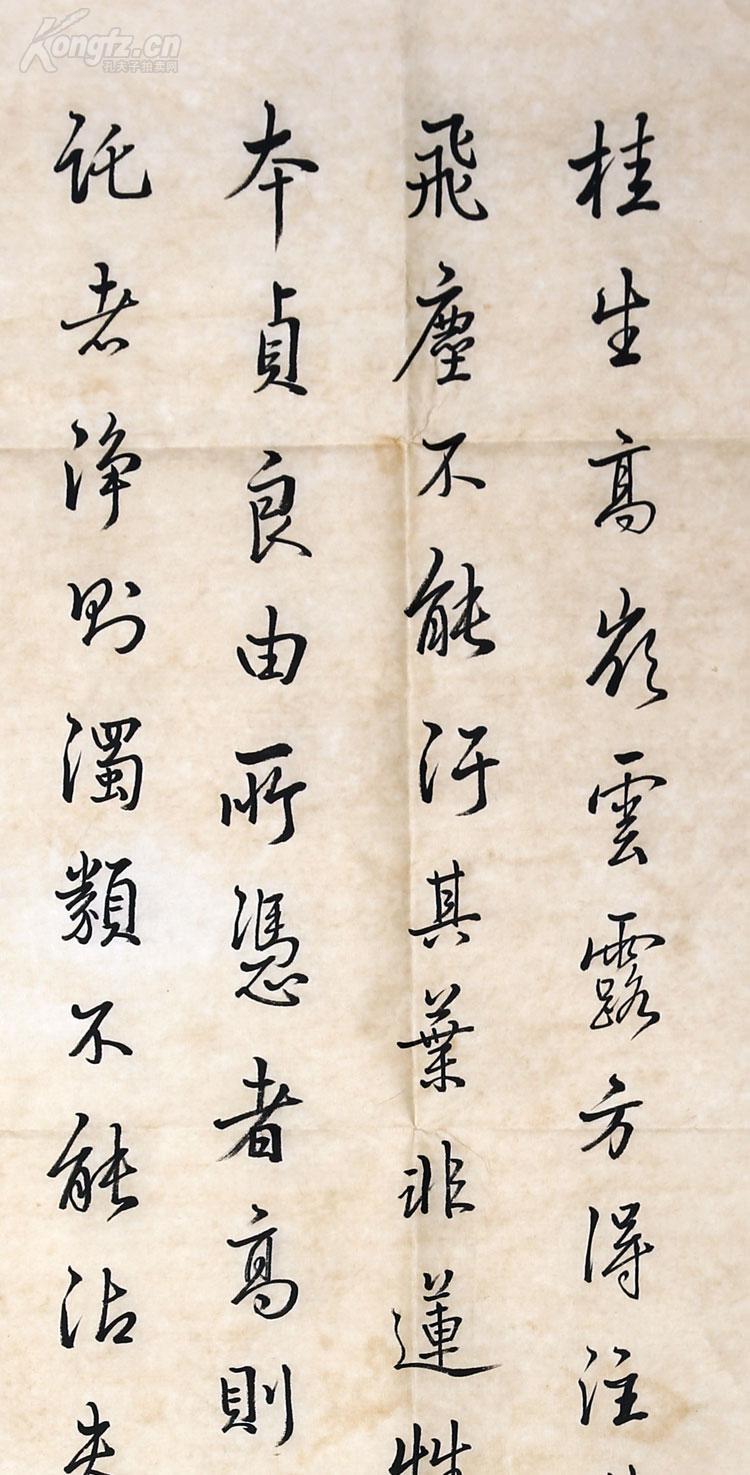 桂生高嶺雲露方得注
飛塵不能汙其葉非蓮性
本貞良由所憑者高則
託者浄則濁類不能沾夫
Kongfz.cn
孔夫子拍卖网